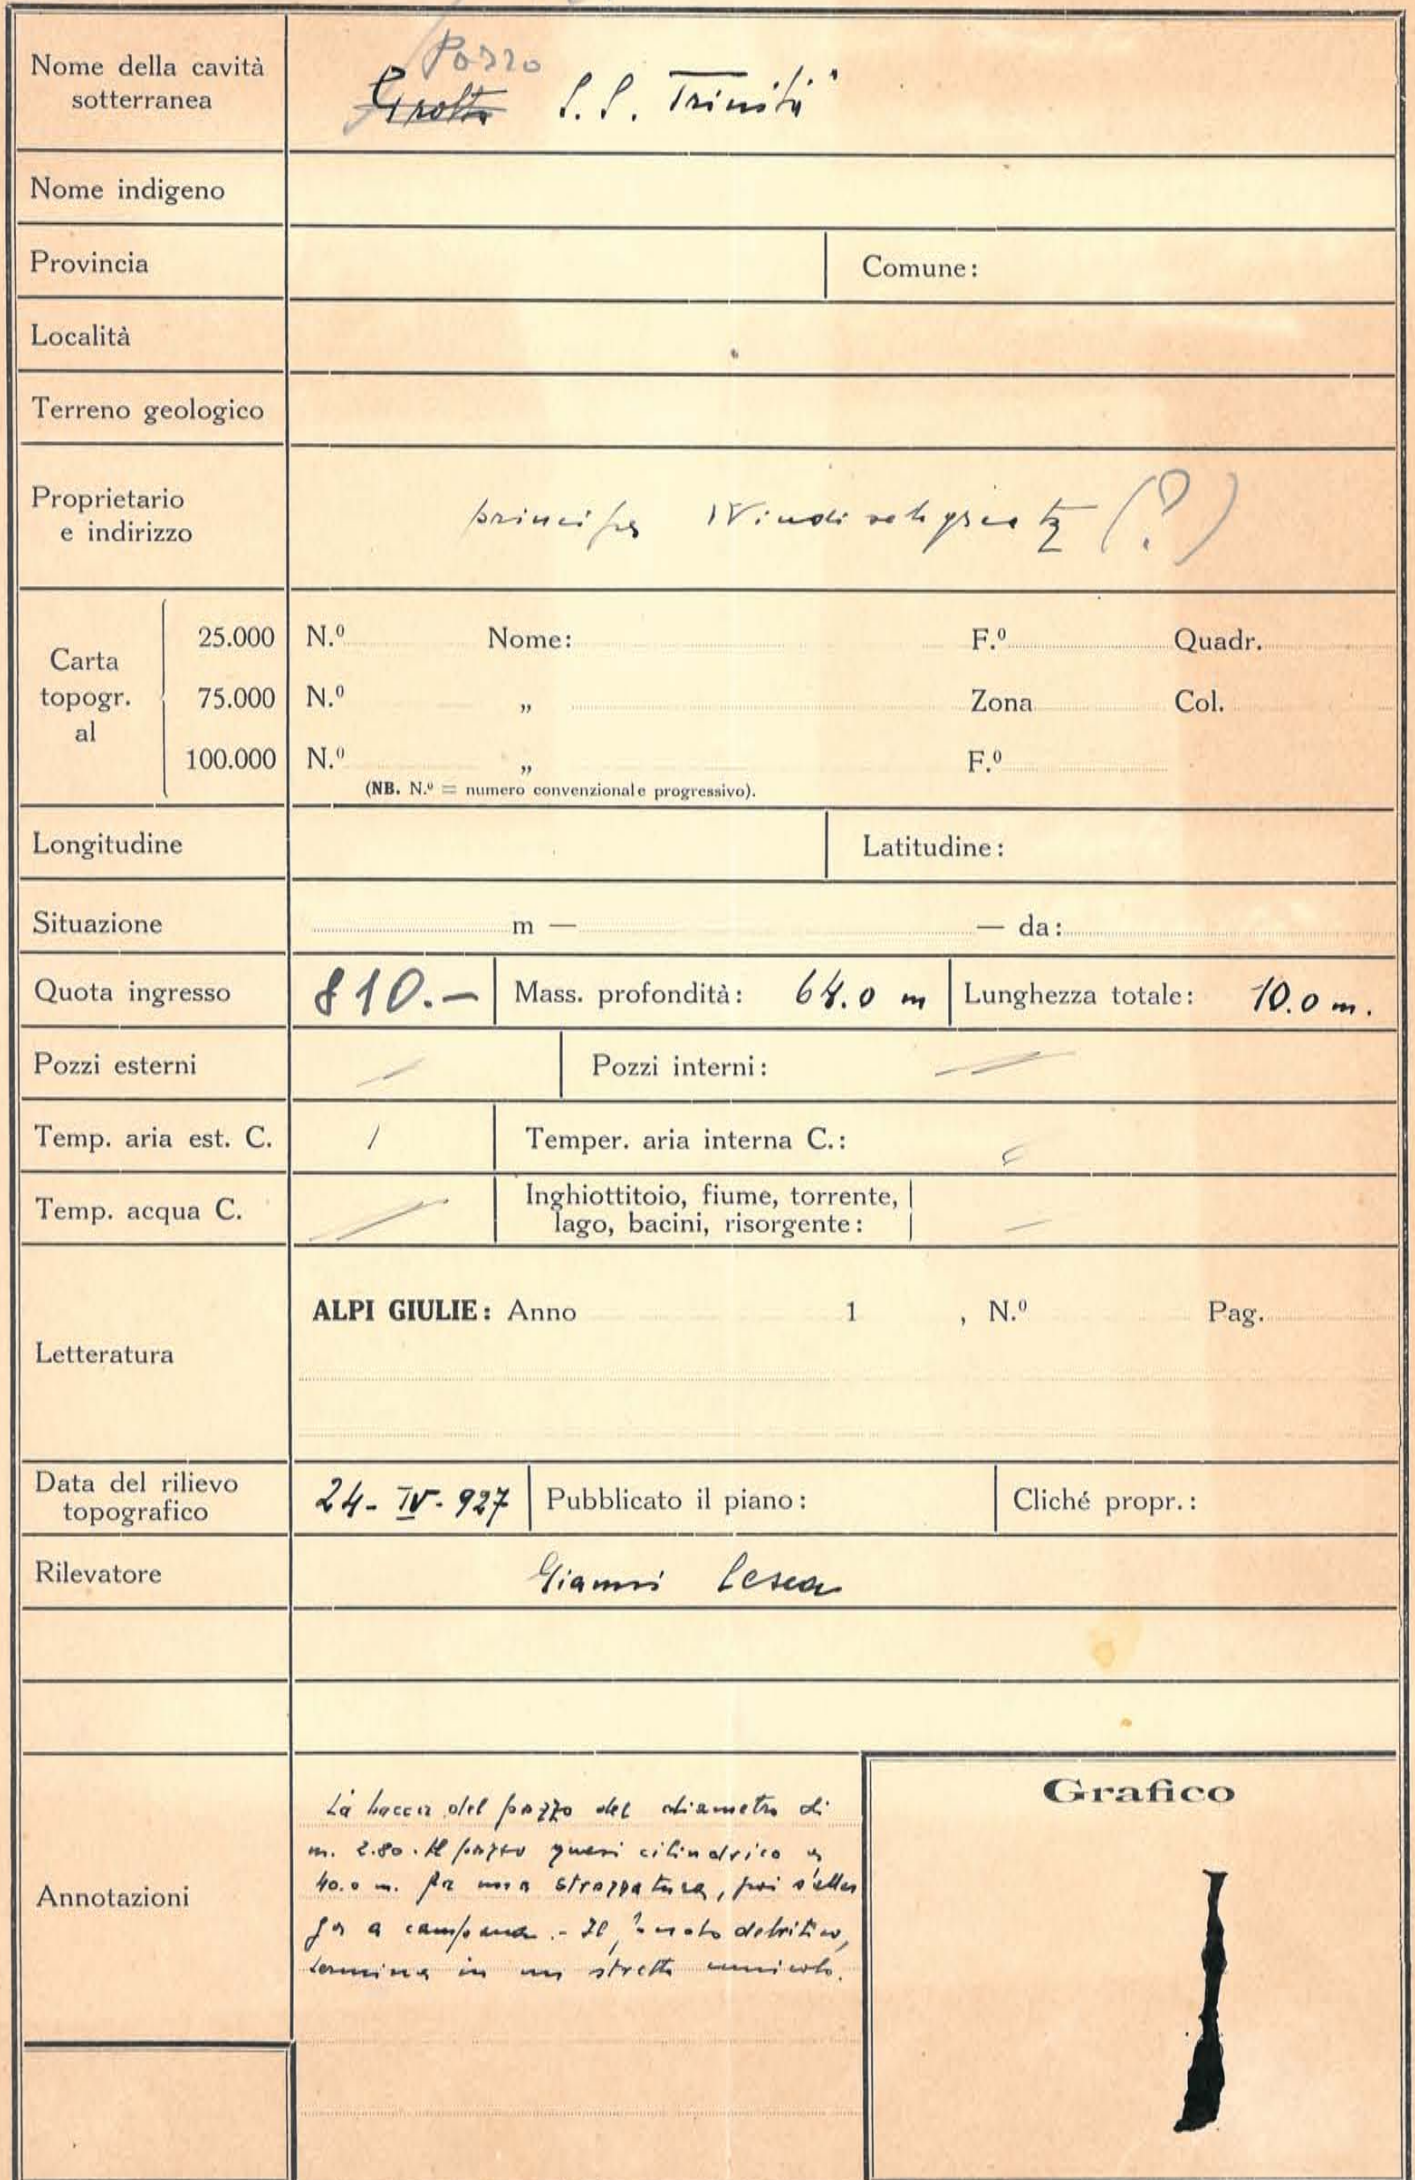 Nome della cavità
sotterranea
Pozzo
Grotta S. S. Trinità
Nome indigeno
Provincia
Comune:
Località
Terreno geologico
Proprietario
e indirizzo
principe Windischgraetz (?)
Carta
topogr.
al
25.000 N.º Nome: F.º Quadr.
75.000 N.º „ Zona Col.
100.000 N.º „ F.º
(NB. N.º = numero convenzionale progressivo).
Longitudine
Latitudine:
Situazione m — — da:
Quota ingresso 810.— Mass. profondità: 64.0 m Lunghezza totale: 10.0 m.
Pozzi esterni Pozzi interni:
Temp. aria est. C. Temper. aria interna C.:
Temp. acqua C. Inghiottitoio, fiume, torrente,
lago, bacini, risorgente:
Letteratura
ALPI GIULIE: Anno 1 , N.º Pag.
Data del rilievo
topografico
24-IV-927 Pubblicato il piano: Cliché propr.:
Rilevatore Gianni Cesca
Annotazioni
La bocca del pozzo del diametro di
m. 2.80. Il pozzo quasi cilindrico a
40.0 m. fa una strozzatura, poi s'allar
ga a campana. - Il suolo detritico,
termina in un stretto cunicolo.
Grafico